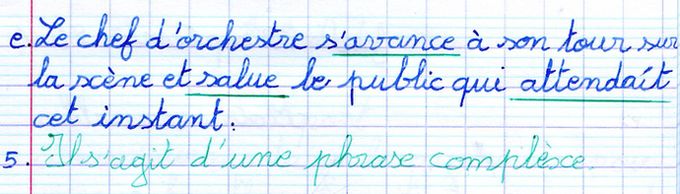 e. Le chef d'orchestre s'avance à son tour sur
la scène et salue le public qui attendait
cet instant.
5. Il s'agit d'une phrase complèxe.